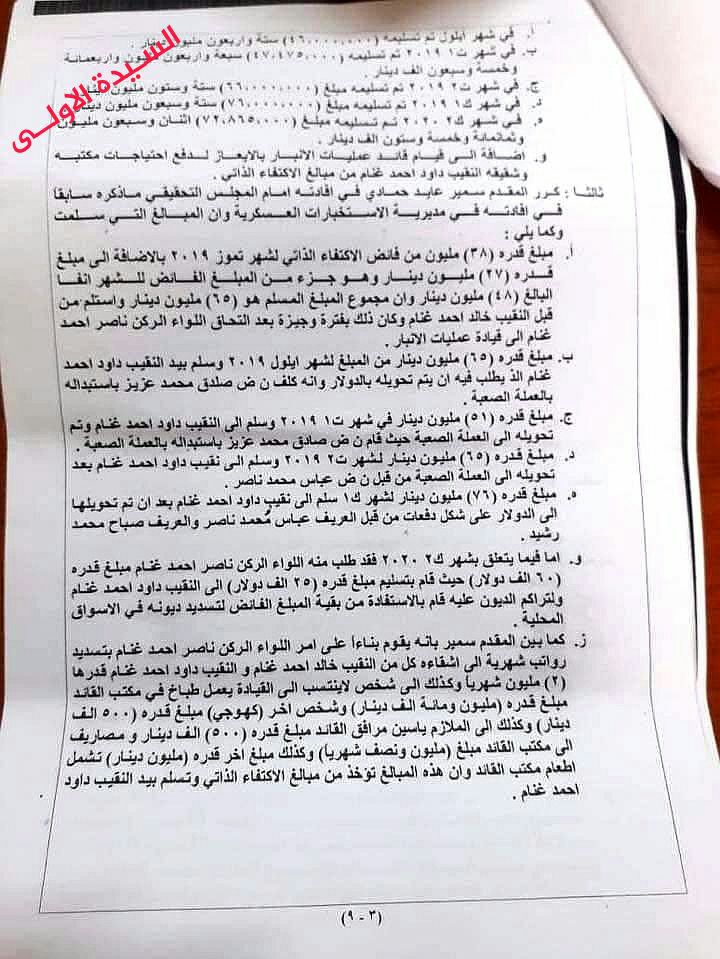 السيدة الاولى
أ. في شهر أيلول تم تسليمه (٤٦,٠٠٠,٠٠٠) ستة واربعون مليون دينار .
ب. في شهر ت١ ٢٠١٩ تم تسليمه (٤٧,٤٧٥,٠٠٠) سبعة واربعون مليون واربعمائة
وخمسة وسبعون الف دينار .
ج. في شهر ت٢ ٢٠١٩ تم تسليمه مبلغ (٦٦,٠٠٠,٠٠٠) ستة وستون مليون دينار
د. في شهر ك١ ٢٠١٩ تم تسليمه مبلغ (٧٦,٠٠٠,٠٠٠) ستة وسبعون مليون دينار
ه. في شهر ك٢ ٢٠٢٠ تم تسليمه مبلغ (٧٢,٨٦٥,٠٠٠) اثنان وسبعون مليون
وثمانمائة وخمسة وستون الف دينار .
و. اضافة الى قيام قائد عمليات الانبار بالايعاز لدفع احتياجات مكتبه
وشقيقه النقيب داود احمد غنام من مبالغ الاكتفاء الذاتي .
ثالثا : كرر المقدم سمير عابد حمادي في افادته امام المجلس التحقيقي ماذكره سابقاً
في افادته في مديرية الاستخبارات العسكرية وان المبالغ التي سلمت
وكما يلي :
أ. مبلغ قدره (٣٨) مليون من فائض الاكتفاء الذاتي لشهر تموز ٢٠١٩ بالاضافة الى مبلغ
قدره (٢٧) مليون دينار وهو جزء من المبلغ الفائض للشهر انفا
البالغ (٤٨) مليون دينار وان مجموع المبلغ المسلم هو (٦٥) مليون دينار واستلم من
قبل النقيب خالد احمد غنام وكان ذلك بفترة وجيزة بعد التحاق اللواء الركن ناصر احمد
غنام الى قيادة عمليات الانبار.
ب. مبلغ قدره (٦٥) مليون دينار من المبلغ لشهر ايلول ٢٠١٩ وسلم بيد النقيب داود احمد
غنام الذ يطلب فيه ان يتم تحويله بالدولار وانه كلف ن ض صلدق محمد عزيز باستبداله
بالعملة الصعبة .
ج. مبلغ قدره (٥١) مليون دينار في شهر ت١ ٢٠١٩ وسلم الى النقيب داود احمد غنام وتم
تحويله الى العملة الصعبة حيث قام ن ض صادق محمد عزيز باستبداله بالعملة الصعبة .
د. مبلغ قدره (٦٥) مليون دينار لشهر ت٢ ٢٠١٩ وسلم الى نقيب داود احمد غنام بعد
تحويله الى العملة الصعبة من قبل ن ض عباس محمد ناصر .
ه. مبلغ قدره (٧٦) مليون دينار لشهر ك١ سلم الى نقيب داود احمد غنام بعد ان تم تحويلها
الى الدولار على شكل دفعات من قبل العريف عباس محمد ناصر والعريف صباح محمد
رشيد .
و. اما فيما يتعلق بشهر ك٢ ٢٠٢٠ فقد طلب منه اللواء الركن ناصر احمد غنام مبلغ قدره
(٦٠ الف دولار) حيث قام بتسليم مبلغ قدره (٢٥ الف دولار) الى النقيب داود احمد غنام
ولتراكم الديون عليه قام بالاستفادة من بقية المبلغ الفائض لتسديد ديونه في الاسواق
المحلية .
ز. كما بين المقدم سمير بانه يقوم بناءاً على امر اللواء الركن ناصر احمد غنام بتسديد
رواتب شهرية الى اشقاءه كل من النقيب خالد احمد غنام و النقيب داود احمد غنام قدرها
(٢) مليون شهرياً وكذلك الى شخص لاينتسب الى القيادة يعمل طباخ في مكتب القائد
مبلغ قدره (مليون ومائة الف دينار) وشخص اخر (كهوجي) مبلغ قدره (٥٠٠ الف
دينار) وكذلك الى الملازم ياسين مرافق القائد مبلغ قدره (٥٠٠) الف دينار و مصاريف
الى مكتب القائد مبلغ (مليون ونصف شهرياً) وكذلك مبلغ اخر قدره (مليون دينار) تشمل
اطعام مكتب القائد وان هذه المبالغ تؤخذ من مبالغ الاكتفاء الذاتي وتسلم بيد النقيب داود
احمد غنام .
(٣ - ٩)